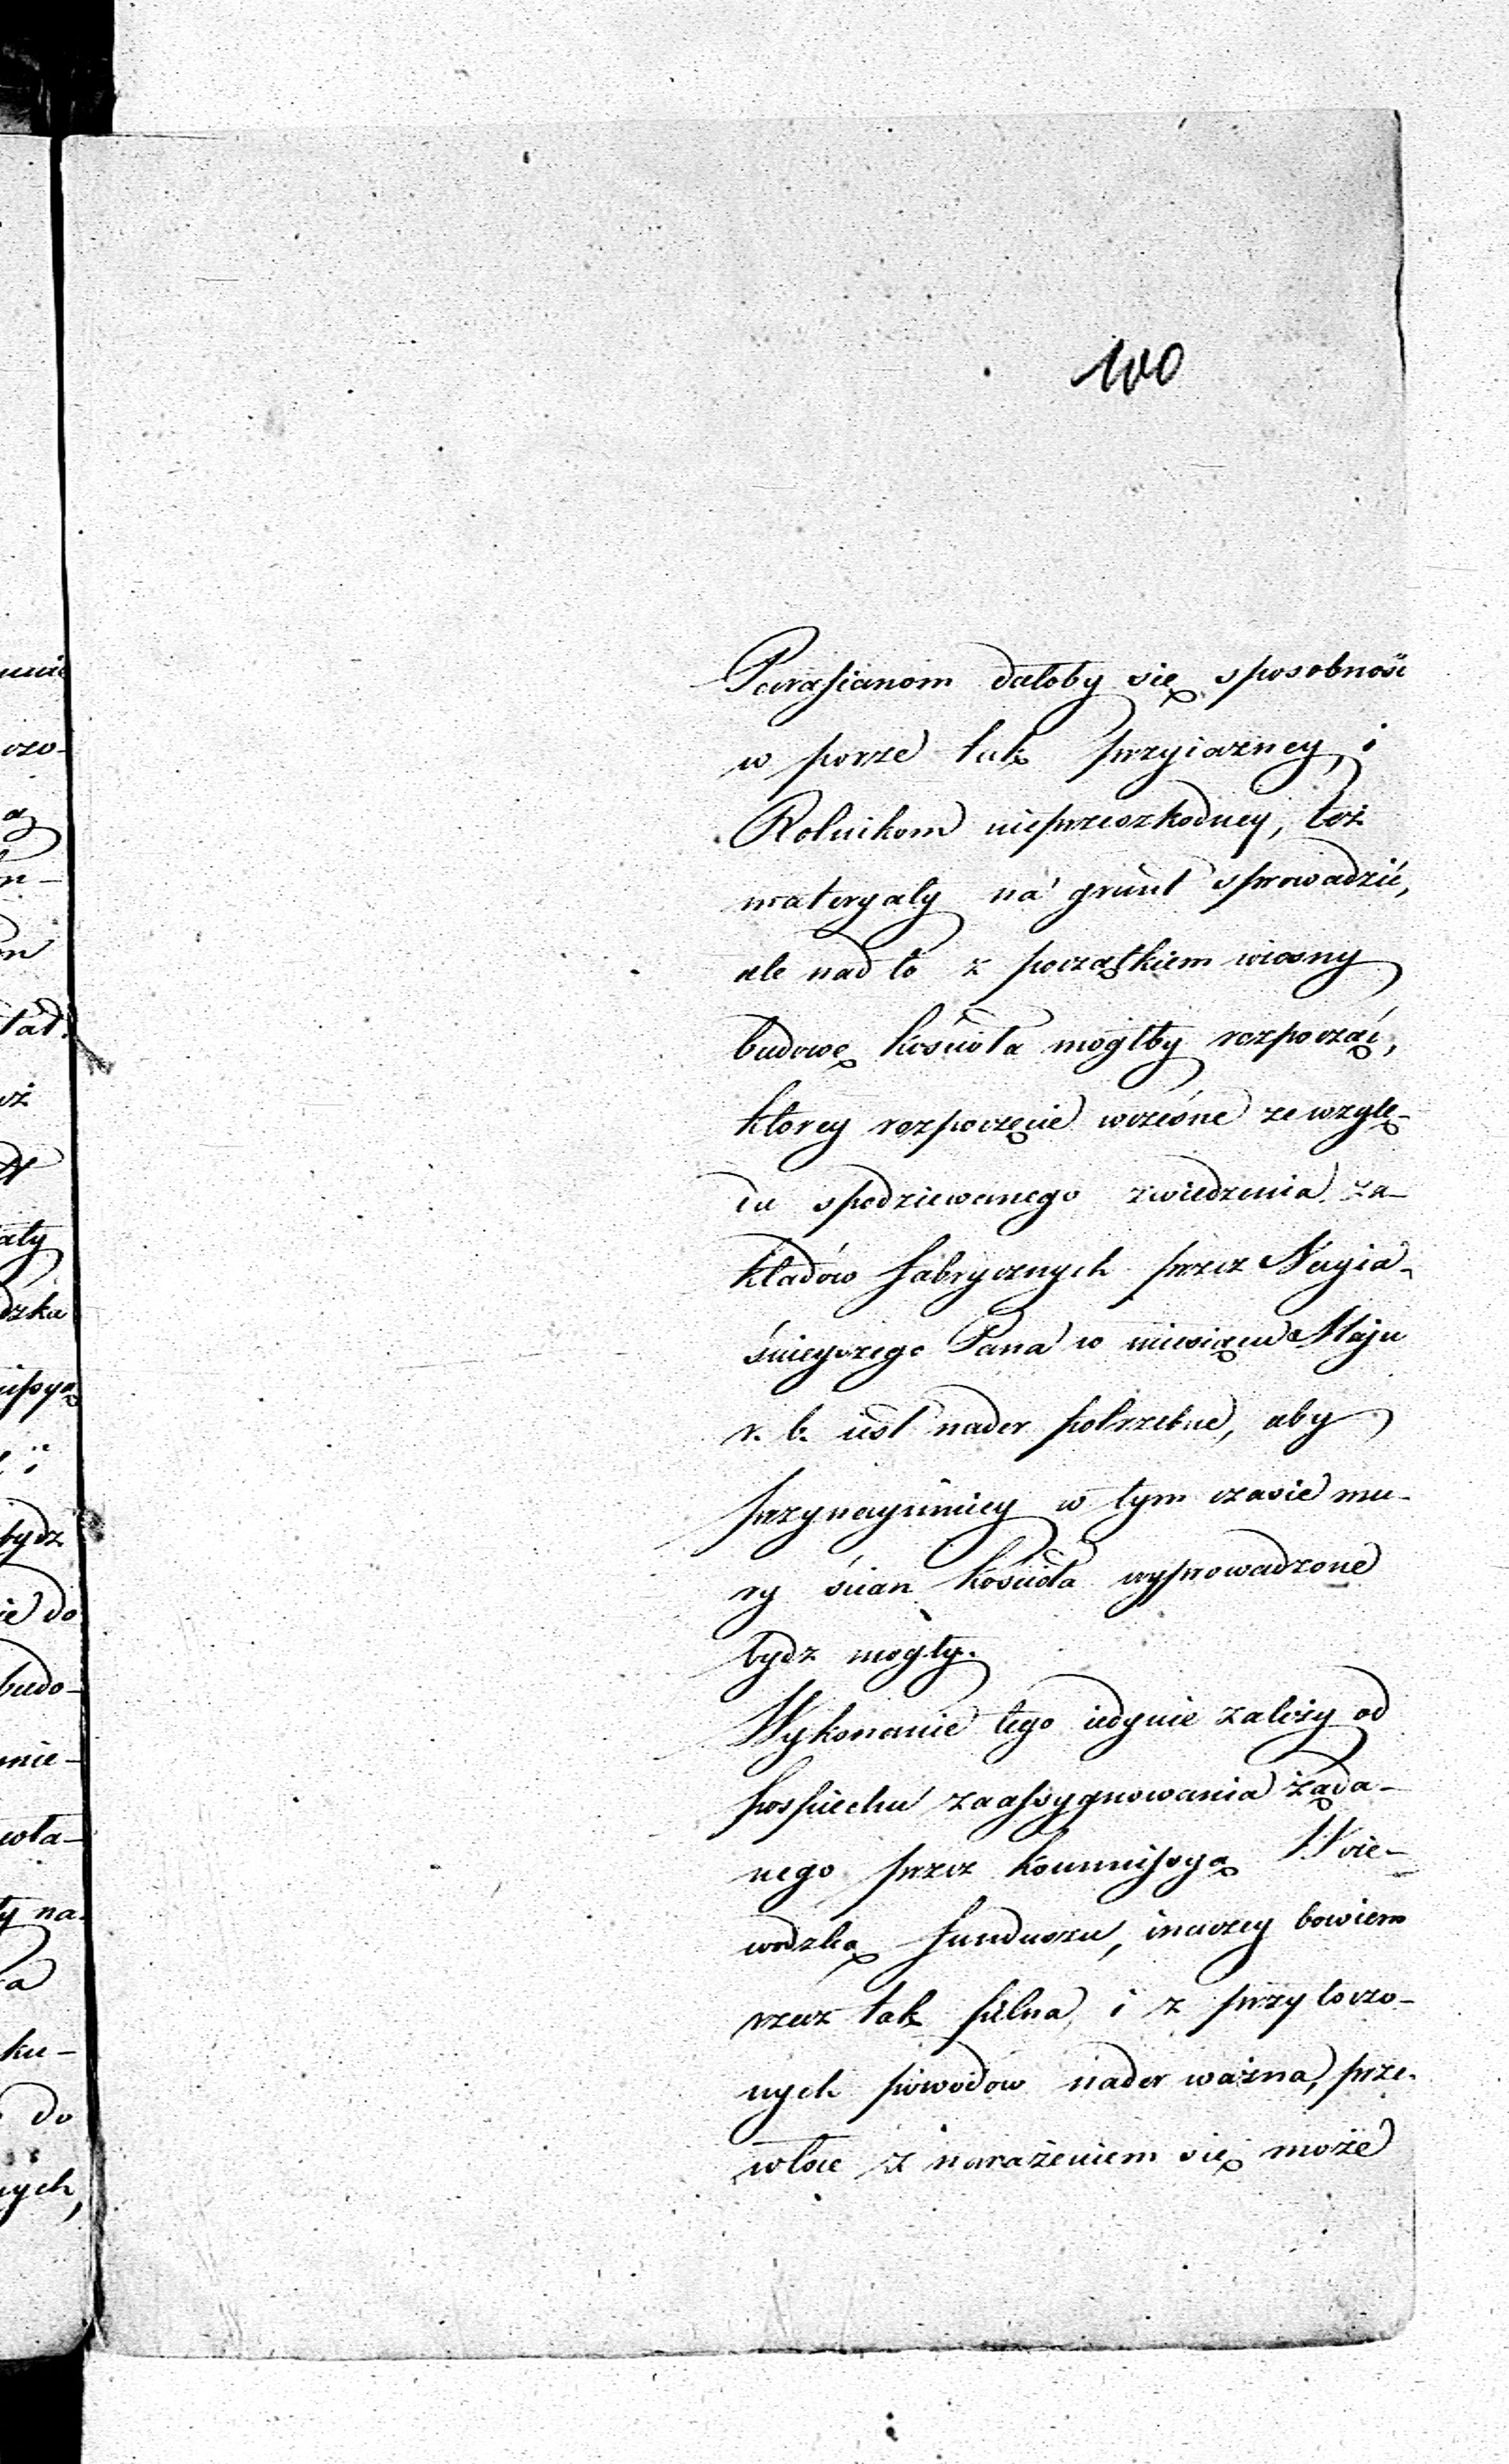 100
Parafianom dałoby się sposobność
w porze tak przyiazney, i
Rolnikom nieprzeszkodney, też
materyały na grunt sprowadzić,
ale nad to z początkiem wiosny
budowę kościoła mogłby rozpocząć,
ktorey rozpoczęcie wcześne ze wzglę-
du spodziewanego zwiedzenia za-
kładów fabrycznych przez Nayia-
śnieyszego Pana w miesiącu Maju
r. b. iest nader potrzebne, aby
przynaymniey w tym czasie mu-
ry ścian kościoła wyprowadzone
bydz mogły.
Wykonanie tego iedynie zależy od
pospiechu zaassygnowania żąda-
nego przez Kommissyą Woie-
wodzką funduszu, inaczey bowiem
rzecz tak pilna, i z przytoczo-
nych powodów nader ważna, prze-
włoce z narażeniem się może
mie
czo-
ą
n-
tał.
uż
ały
dzka
bydz
ie do
budo-
mie-
wła-
ły na
ku-
do
nych,